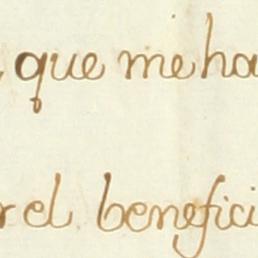 que me ha
el benefici